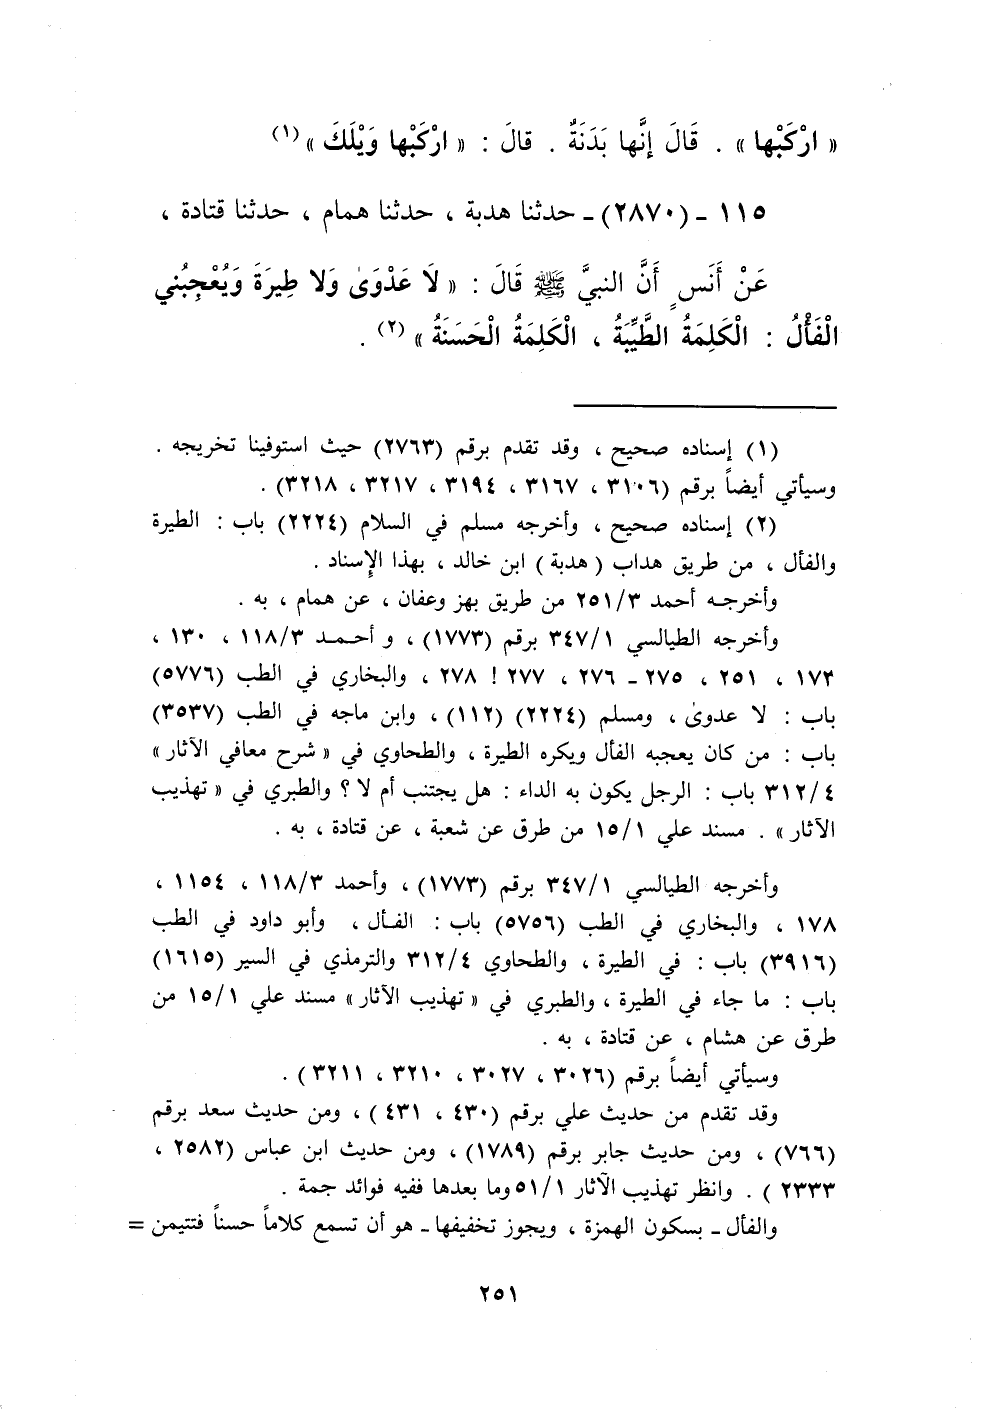 « ارْكَبْها » . قَالَ إِنَّها بَدَنَةٌ . قالَ : « ارْكَبْها وَيْلَكَ »(١)
١١٥ ـ (٢٨٧٠) ـ حدثنا هدبة ، حدثنا همام ، حدثنا قتادة ،
عَنْ أَنَسٍ أَنَّ النبيَّ ﷺ قَالَ : « لَا عَدْوَىٰ وَلا طِيرَةَ وَيُعْجِبُني
الْفَأْلُ : الْكَلِمَةُ الطَّيِّبَةُ ، الْكَلِمَةُ الْحَسَنَةُ »(٢) .
(١) إسناده صحيح ، وقد تقدم برقم (٢٧٦٣) حيث استوفينا تخريجه .
وسيأتي أيضاً برقم (٣١٠٦ ، ٣١٦٧ ، ٣١٩٤ ، ٣٢١٧ ، ٣٢١٨) .
(٢) إسناده صحيح ، وأخرجه مسلم في السلام (٢٢٢٤) باب : الطيرة
والفأل ، من طريق هداب ( هدبة ) ابن خالد ، بهذا الإِسناد .
وأخرجه أحمد ٢٥١/٣ من طريق بهز وعفان ، عن همام ، به .
وأخرجه الطيالسي ٣٤٧/١ برقم (١٧٧٣) ، و أحمد ١١٨/٣ ، ١٣٠ ،
١٧٣ ، ٢٥١ ، ٢٧٥ ـ ٢٧٦ ، ٢٧٧ ! ٢٧٨ ، والبخاري في الطب (٥٧٧٦)
باب : لا عدوىٰ ، ومسلم (٢٢٢٤) (١١٢) ، وابن ماجه في الطب (٣٥٣٧)
باب : من كان يعجبه الفأل ويكره الطيرة ، والطحاوي في « شرح معافي الآثار »
٣١٢/٤ باب : الرجل يكون به الداء : هل يجتنب أم لا ؟ والطبري في « تهذيب
الآثار » . مسند علي ١٥/١ من طرق عن شعبة ، عن قتادة ، به .
وأخرجه الطيالسي ٣٤٧/١ برقم (١٧٧٣) ، وأحمد ١١٨/٣ ، ١١٥٤ ،
١٧٨ ، والبخاري في الطب (٥٧٥٦) باب : الفأل ، وأبو داود في الطب
(٣٩١٦) باب : في الطيرة ، والطحاوي ٣١٢/٤ والترمذي في السير (١٦١٥)
باب : ما جاء في الطيرة ، والطبري في « تهذيب الآثار » مسند علي ١٥/١ من
طرق عن هشام ، عن قتادة ، به .
وسيأتي أيضاً برقم (٣٠٢٦ ، ٣٠٢٧ ، ٣٢١٠ ، ٣٢١١ ) .
وقد تقدم من حديث علي برقم (٤٣٠ ، ٤٣١ ) ، ومن حديث سعد برقم
(٧٦٦) ، ومن حديث جابر برقم (١٧٨٩) ، ومن حديث ابن عباس (٢٥٨٢ ،
٢٣٣٣ ) . وانظر تهذيب الآثار ٥١/١ وما بعدها ففيه فوائد جمة .
والفأل ـ بسكون الهمزة ، ويجوز تخفيفها ـ هو أن تسمع كلاماً حسناً فتتيمن =
٢٥١